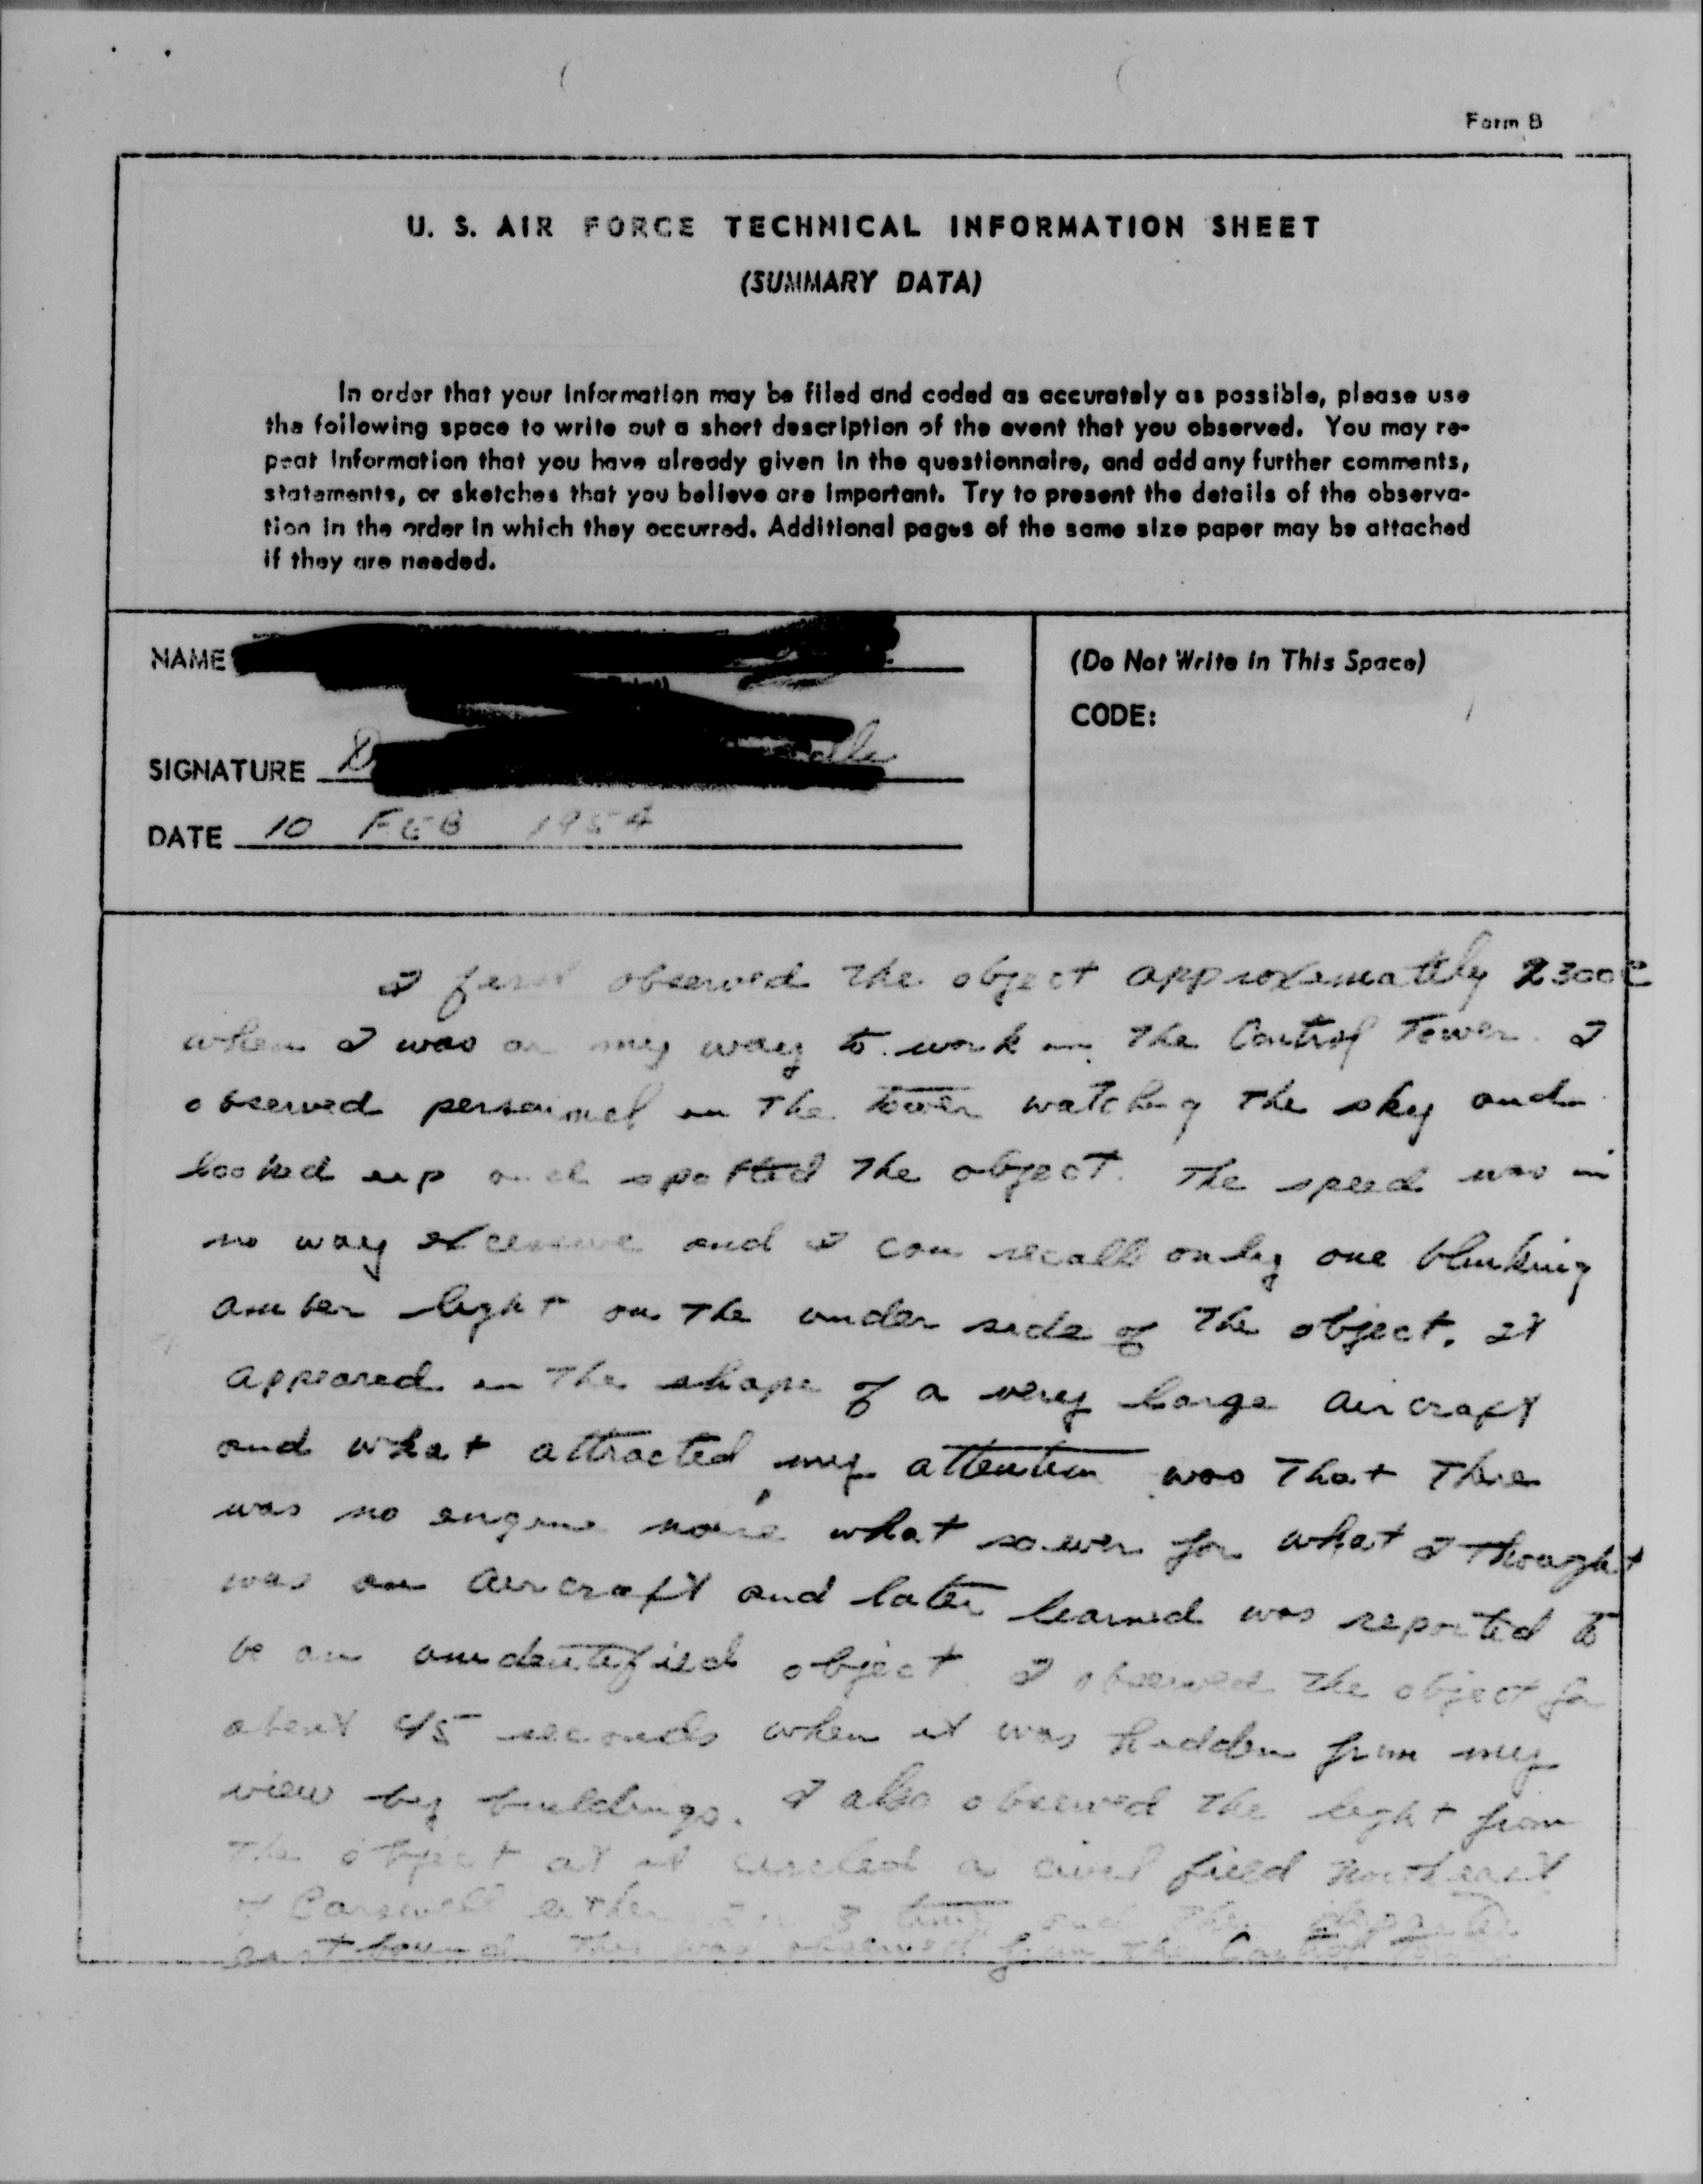 Form B
U. S. AIR FORCE TECHNICAL INFORMATION SHEET
(SUMMARY DATA)
In order that your information may be filed and coded as accurately as possible, please use
the following space to write out a short description of the event that you observed. You may re-
peat information that you have already given in the questionnaire, and add any further comments,
statements, or sketches that you believe are important. Try to present the details of the observa-
tion in the order in which they occurred. Additional pages of the same size paper may be attached
if they are needed.
NAME
(Do Not Write in This Space)
CODE:
SIGNATURE
DATE 10 FEB 1954
I first observed the object approximattly 2300C
when I was on my way to work in the Control Tower. I
observed personnel in the tower watching the sky and
looked up and spotted the object. The speed was in
no way excessive and I can recall only one blinking
amber light on the under side of the object. It
appeared in the shape of a very large aircraft
and what attracted my attention was that there
was no engine noise what soever for what I thought
was an aircraft and later learned was reported to
be an unidentified object. I observed the object for
about 45 seconds when it was hidden from my
view by buildings. I also observed the light from
the object as it circled a civil field northeast
of Carswell either 2 or 3 times and then departed
east bound. This was observed from the Control Tower.